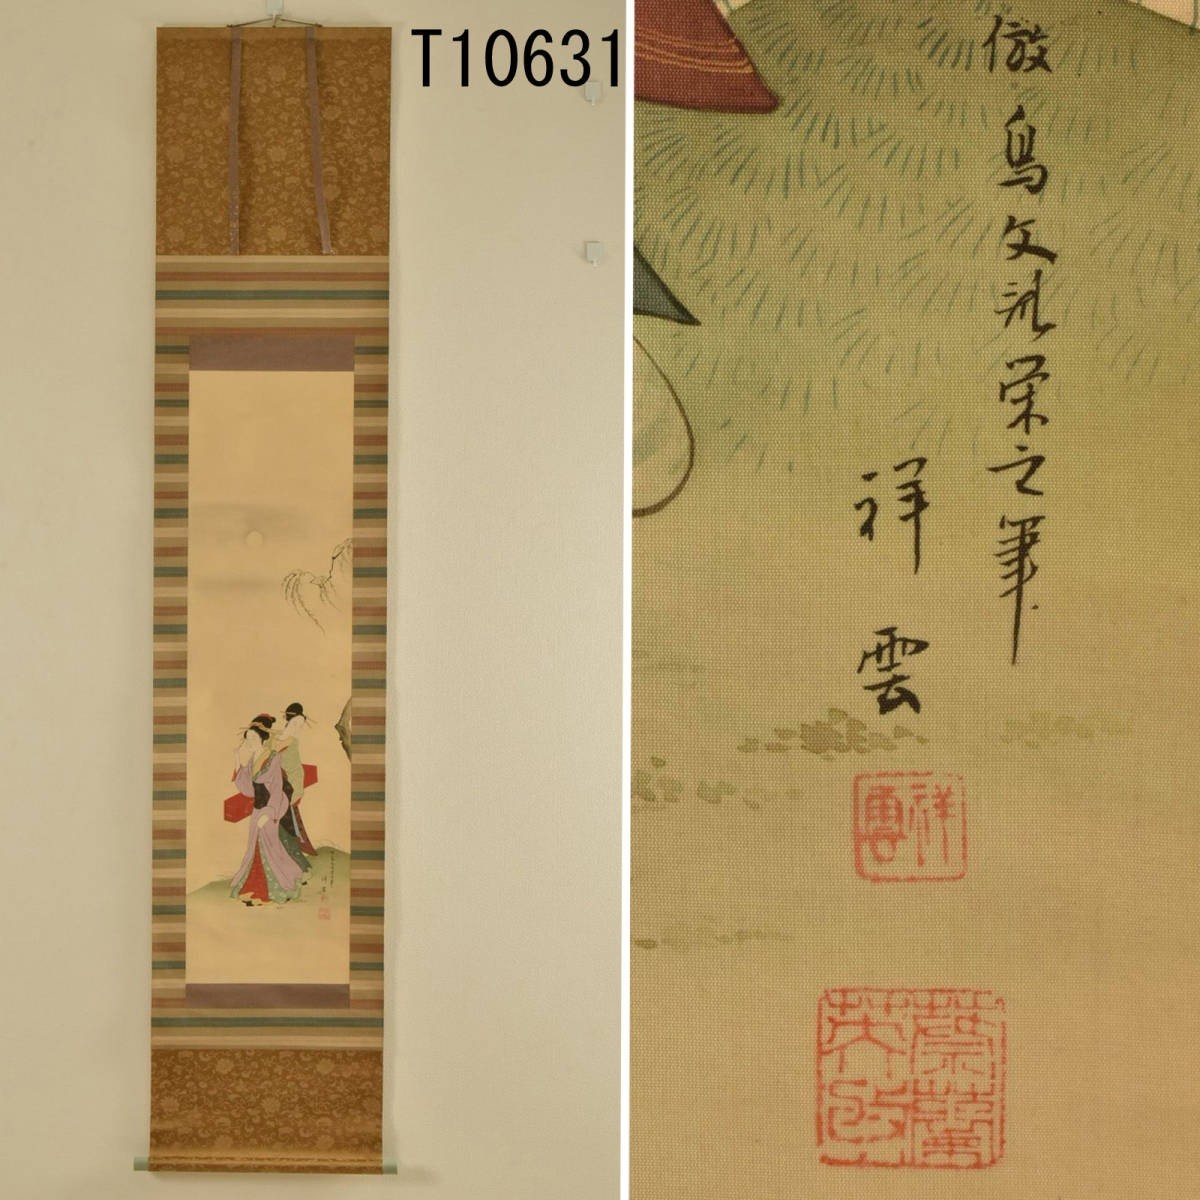 T10631
倣鳥文斎栄之筆
祥雲
祥雲